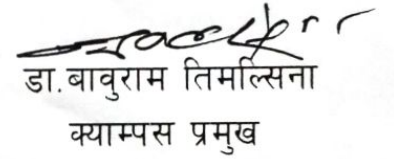 डा.बावुराम तिमल्सिना
क्याम्पस प्रमुख